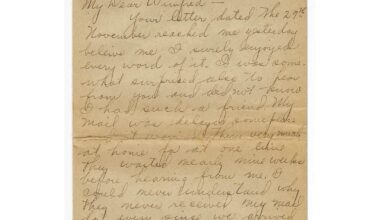 My Dear Winifred —
Your letter dated The 29th
November reached me yesterday
believe me I surely enjoyed
every word of it. I was some-
what surprised also to hear
from you and did not know
I had such a friend. My
Mail was delayed
very much
at home for at one time
they waited nearly nine weeks
before hearing from me, I
could never understand why
they never received my mail
for ever since we arrived